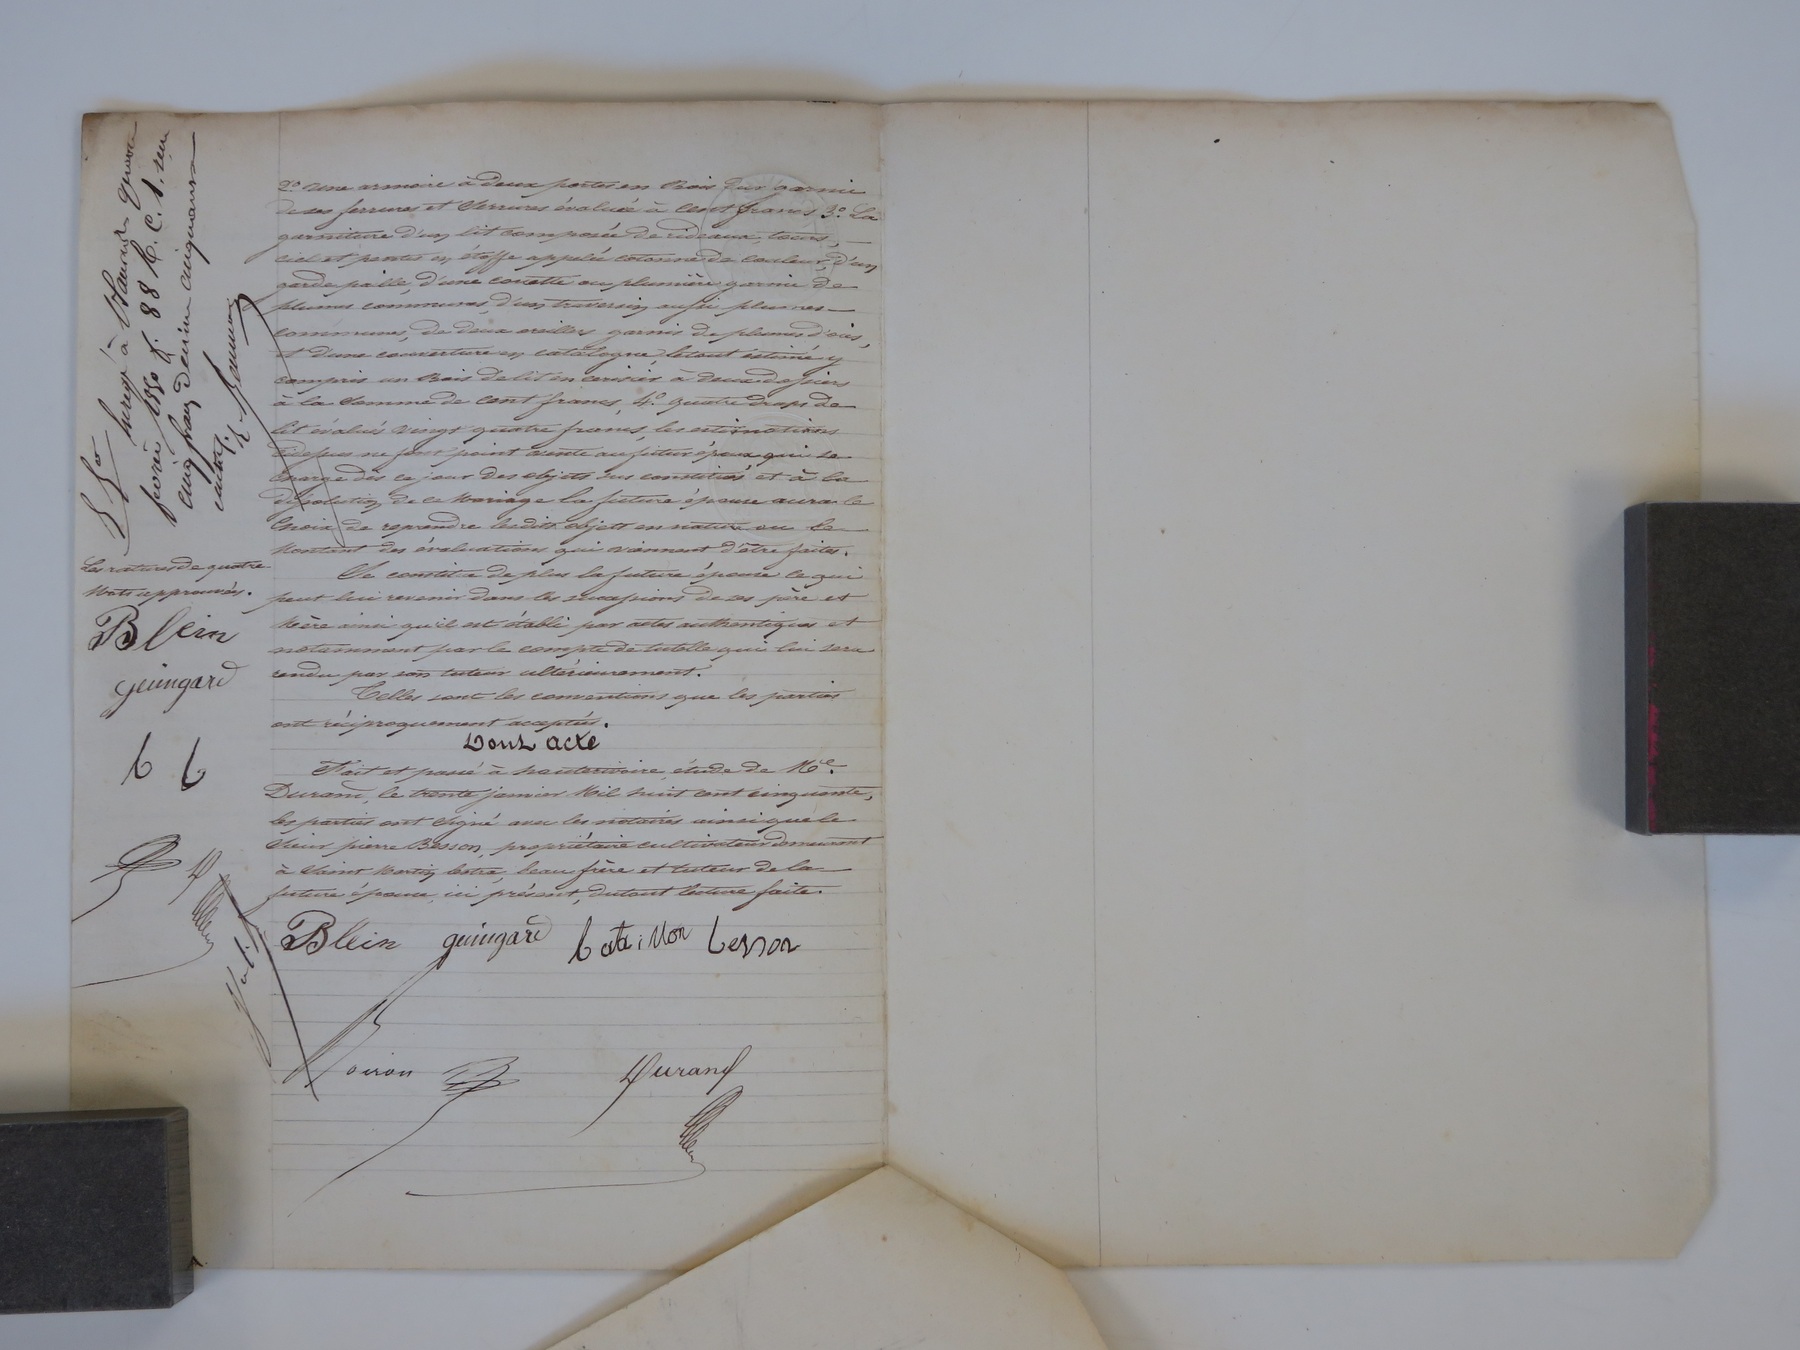 2º Une armoire à deux portes en Bois dur garnie
de ses ferrures et serrures évaluée à cent francs 3º La
garniture d'un lit composée de rideaux, tours,
ciel et pentes en étoffe appelée cotonne de couleur, d'un
garde paille, d'une couette ou plumière garnie de
plumes communes, d'un traversin aussi plumes
communes, de deux oreillers garnis de plumes d'oies,
et d'une couverture en catalogne, le tout estimé y
compris un Bois de lit en cerisier à deux dossiers
à la somme de cent francs, 4º quatre draps de
lit évalués vingt quatre francs, les estimations
ci dessus ne font point vente au futur époux qui se
charge dès ce jour des objets sus constitués et à la
dissolution de ce Mariage la future épouse aura le
Choix de reprendre lesdits objets en nature ou le
Montant des évaluations qui viennent d'être faites.
Se constitue de plus la future épouse ce qui
peut lui revenir dans les successions de ses père et
Mère ainsi qu'il est établi par actes authentiques et
notamment par le compte de tutelle qui lui sera
rendu par son tuteur ultérieurement.
Telles sont les conventions que les parties
ont réciproquement acceptées.
Dont acte
Fait et passé à hauterivoire, étude de Me.
Durand, le trente janvier Mil huit cent cinquante,
les parties ont Signé avec les notaires ainsi que le
Sieur pierre Besson, propriétaire cultivateur demeurant
à Saint Martin lestra, beau frère et tuteur de la
future épouse, ici présent, du tout lecture faite.
Blein guingard batillon besson
Coiron Durand
février 1850 f. 88 R. C. 1.
cinq francs dixième cinquante
Les ratures de quatre
Mots approuvées.
Blein
guingard
b b